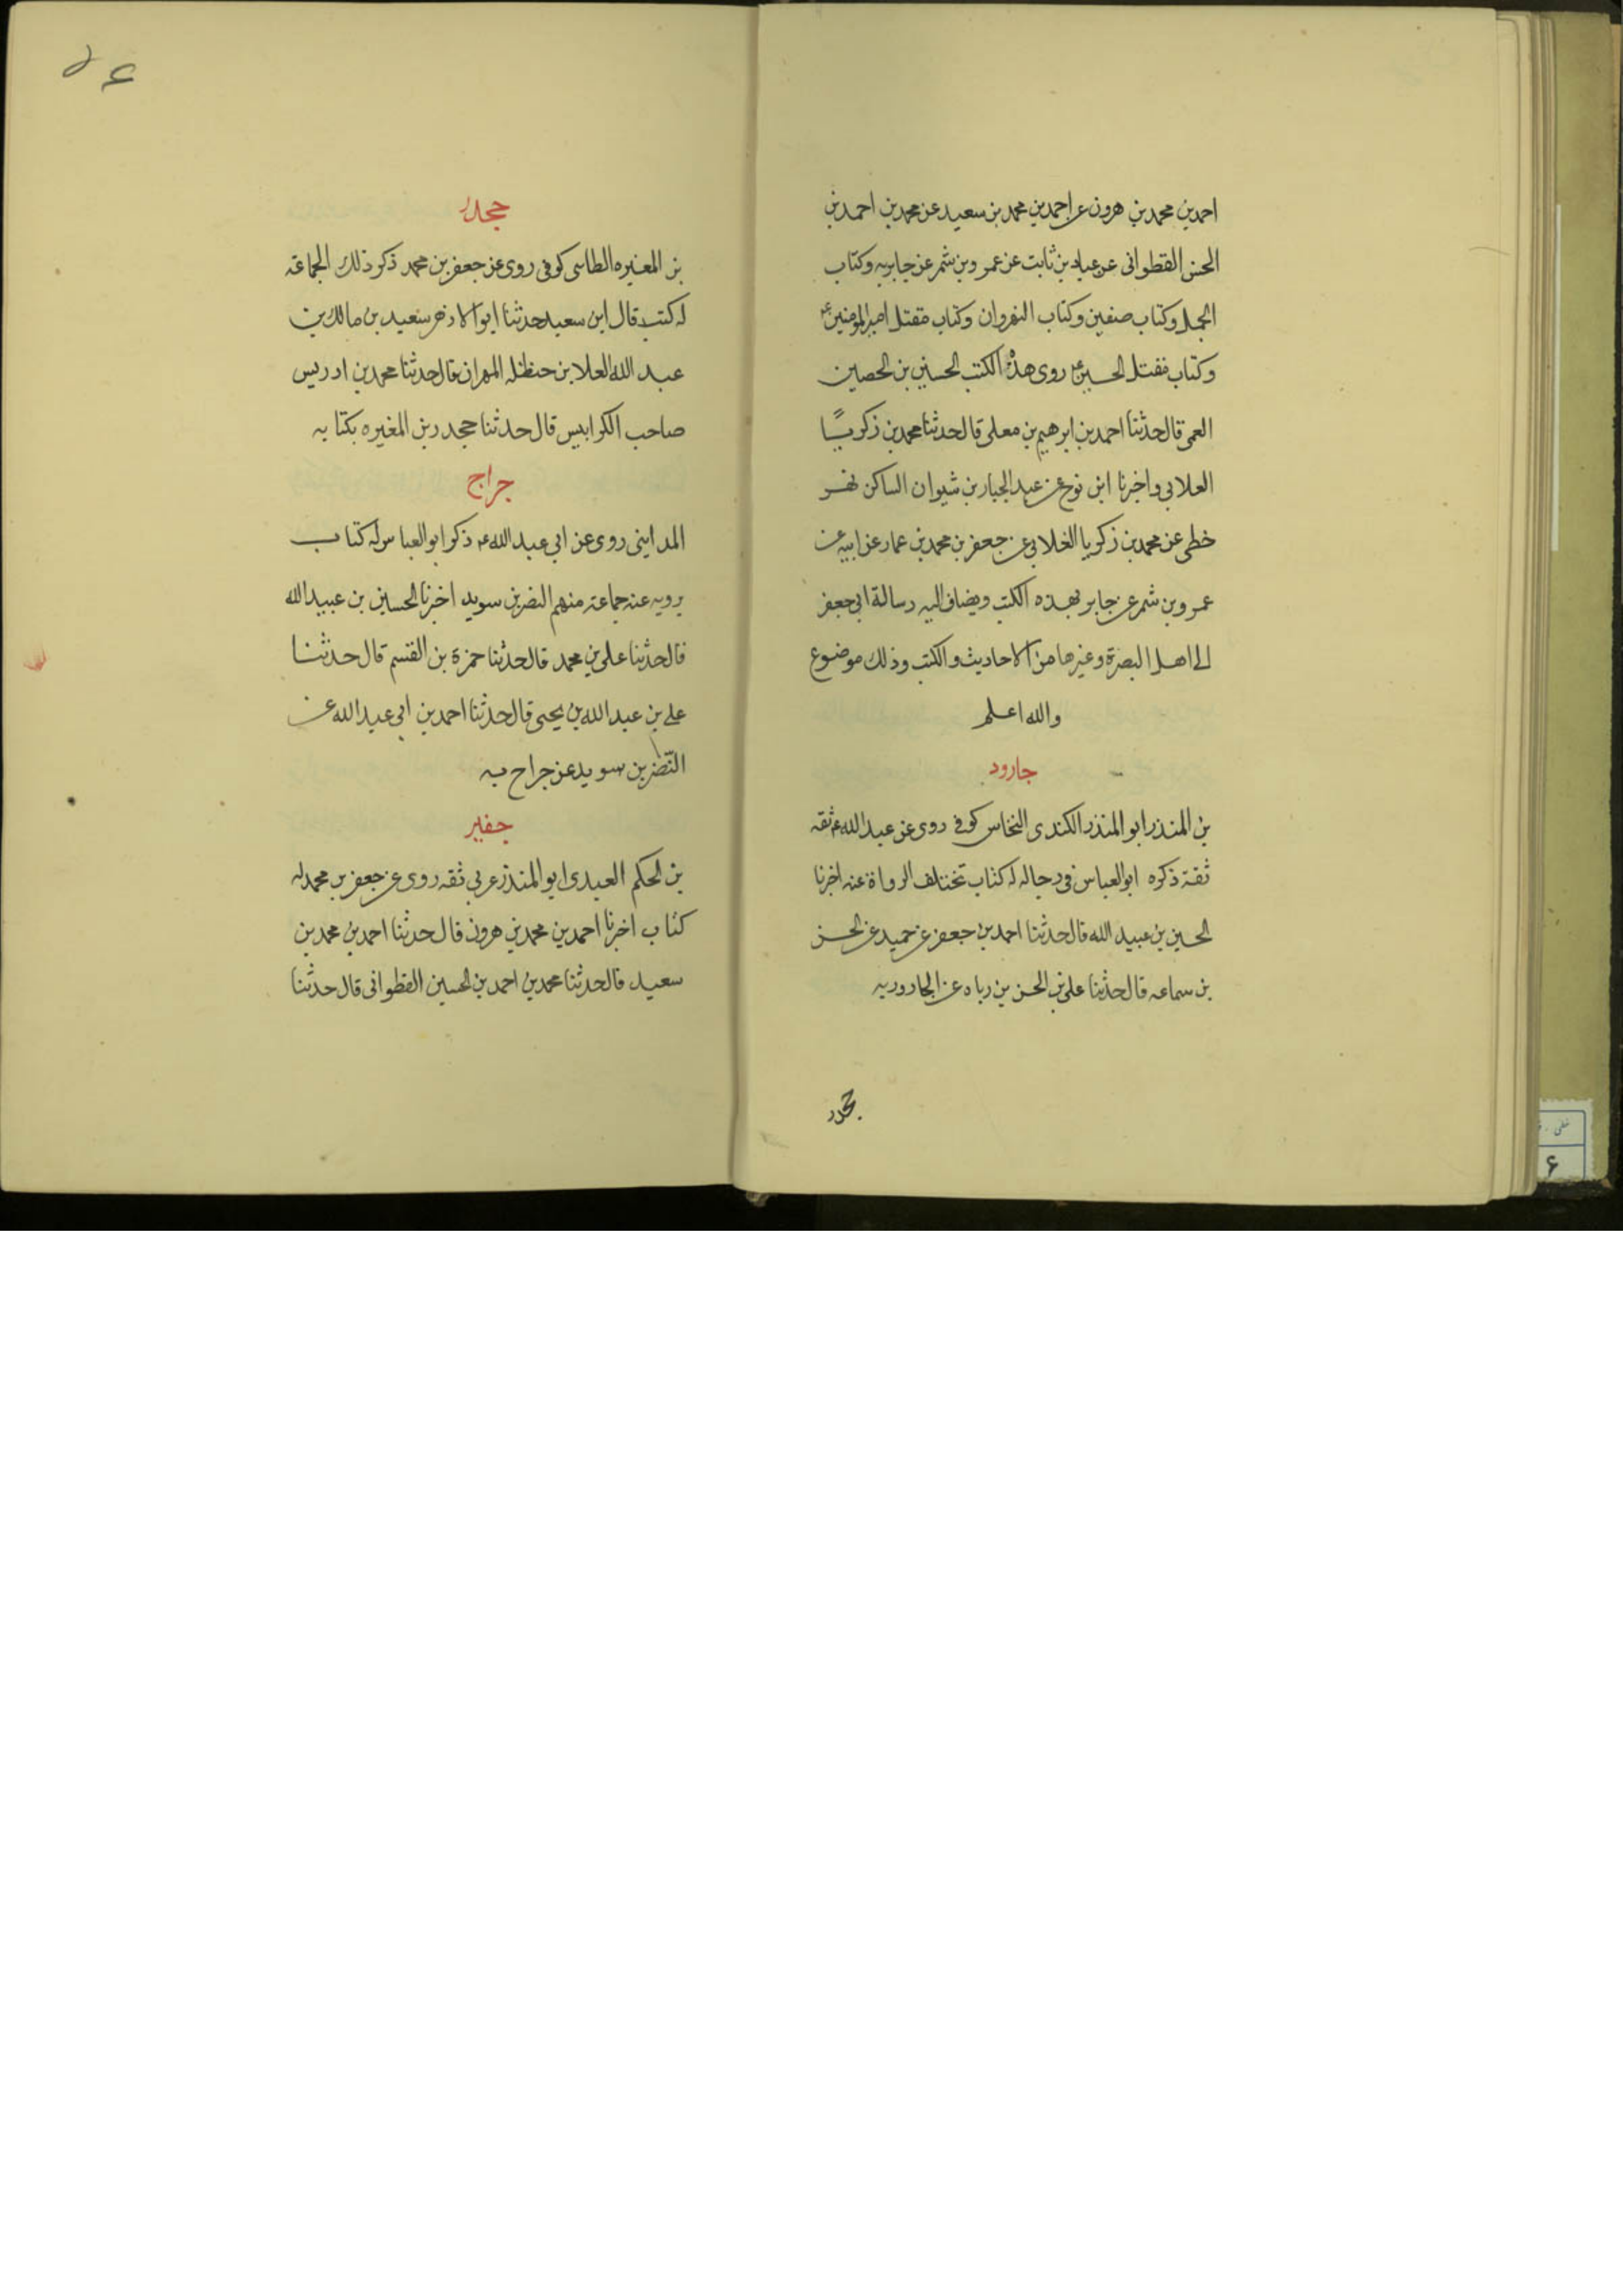 احمد بن محمد بن هرون عن احمد بن محمد بن سعيد عن محمد بن احمد بن
الحسن القطوانى عن عباد بن ثابت عن عمرو بن شمر عن جابر به وكتاب
الجمل وكتاب صفين وكتاب النهروان وكتاب مقتل امير المومنين ع
وكتاب مقتل الحسين ع روى هذه الكتب الحسين بن الحصين
العمى قال حدثنا احمد بن ابرهيم بن معلى قال حدثنا محمد بن زكريا
الغلابى واخبرنا ابن نوح عن عبد الجبار بن شيوان الساكن نهر
خطى عن محمد بن زكريا الغلابى عن جعفر بن محمد بن عمار عن ابيه عن
عمرو بن شمر عن جابر بهذه الكتب ويضاف اليه رسالة ابى جعفر
الى اهل البصرة وغيرها من الاحاديث والكتب وذلك موضوع
والله اعلم
جارود
بن المنذر ابو المنذر الكندى النخاس كوفى روى عن عبد الله ع ثقه
ثقة ذكره ابو العباس فى رجاله له كتاب تختلف الرواة عنه اخبرنا
الحسين بن عبيد الله قال حدثنا احمد بن جعفر عن حميد عن الحسن
بن سماعه قال حدثنا على بن الحسن بن رباه عن الجارود به
جحدر
۵۶
جحدر
بن المغيره الطاىى كوفى روى عن جعفر بن محمد ذكر ذلك الجماعة
له كتب قال ابن سعيد حدثنا ابو الازهر سعيد بن مالك بن
عبد الله العلا بن حنظله المهران قال حدثنا محمد بن ادريس
صاحب الكرابيس قال حدثنا جحدر بن المغيره بكتابه
جراح
المداينى روى عن ابى عبد الله ع ذكر ابو العباس له كتاب
يرويه عنه جماعة منهم النضر بن سويد اخبرنا الحسين بن عبيد الله
قال حدثنا على بن محمد قال حدثنا حمزة بن القسم قال حدثنا
على بن عبد الله بن يحيى قال حدثنا احمد بن ابى عبد الله عن
النضر بن سويد عن جراح به
جفير
بن الحكم العبدى ابو المنذر عربى ثقه روى عن جعفر بن محمد له
كتاب اخبرنا احمد بن محمد بن هرون قال حدثنا احمد بن محمد بن
سعيد قال حدثنا محمد بن احمد بن الحسين القطوانى قال حدثنا